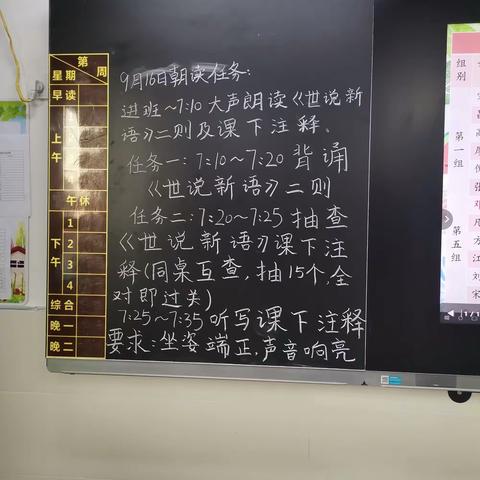 第 周
星期
早读
上午
4
午休
下午
1
2
3
4
综合
晚一
晚二
9月16日朝读任务:
进班~7:10 大声朗读《世说新
语》二则及课下注释、
任务一:7:10~7:20 背诵
《世说新语》二则
任务二:7:20~7:25 抽查
《世说新语》课下注
释(同桌互查,抽15个,全
对即过关)
7:25~7:35 听写课下注释
要求:坐姿端正,声音响亮
组别
第一组
第五组